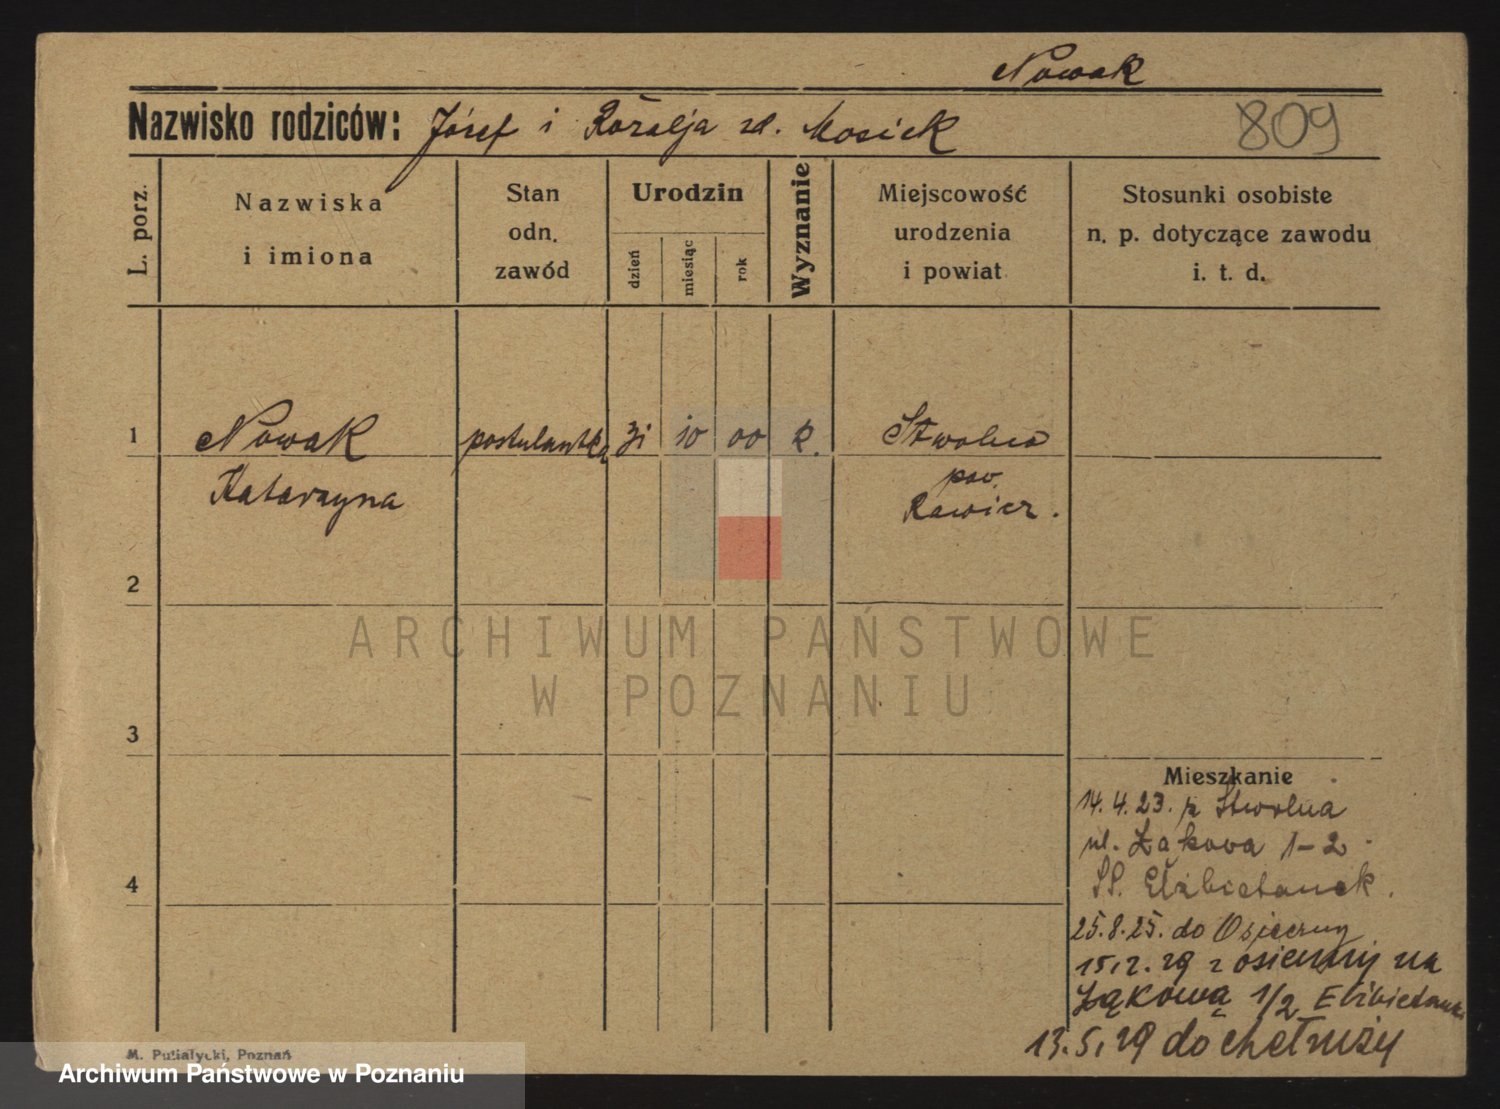 Nowak
Nazwisko rodziców: Józef i Rózalja zd. Mosiek
809
L. porz.
Nazwiska
i imiona
Stan
odn.
zawód
Urodzin
dzień
miesiąc
rok
Wyznanie
Miejscowość
urodzenia
i powiat
Stosunki osobiste
n. p. dotyczące zawodu
i. t. d.
1
Nowak postulantka 31 10 00 k. Stwolna
Katarzyna
pow.
Rawicz.
2
ARCHIWUM PAŃSTWOWE
W POZNANIU
3
Mieszkanie
14.4.23. z Stwolna
ul. Łąkowa 1-2
SS. Elżbietanek.
25.8.25. do Osieczny
15.2.29 z Osieczny na
Łąkową 1/2 Elżbietanki
13.5.29 do Chełmży
4
M. Putiatycki, Poznań
Archiwum Państwowe w Poznaniu